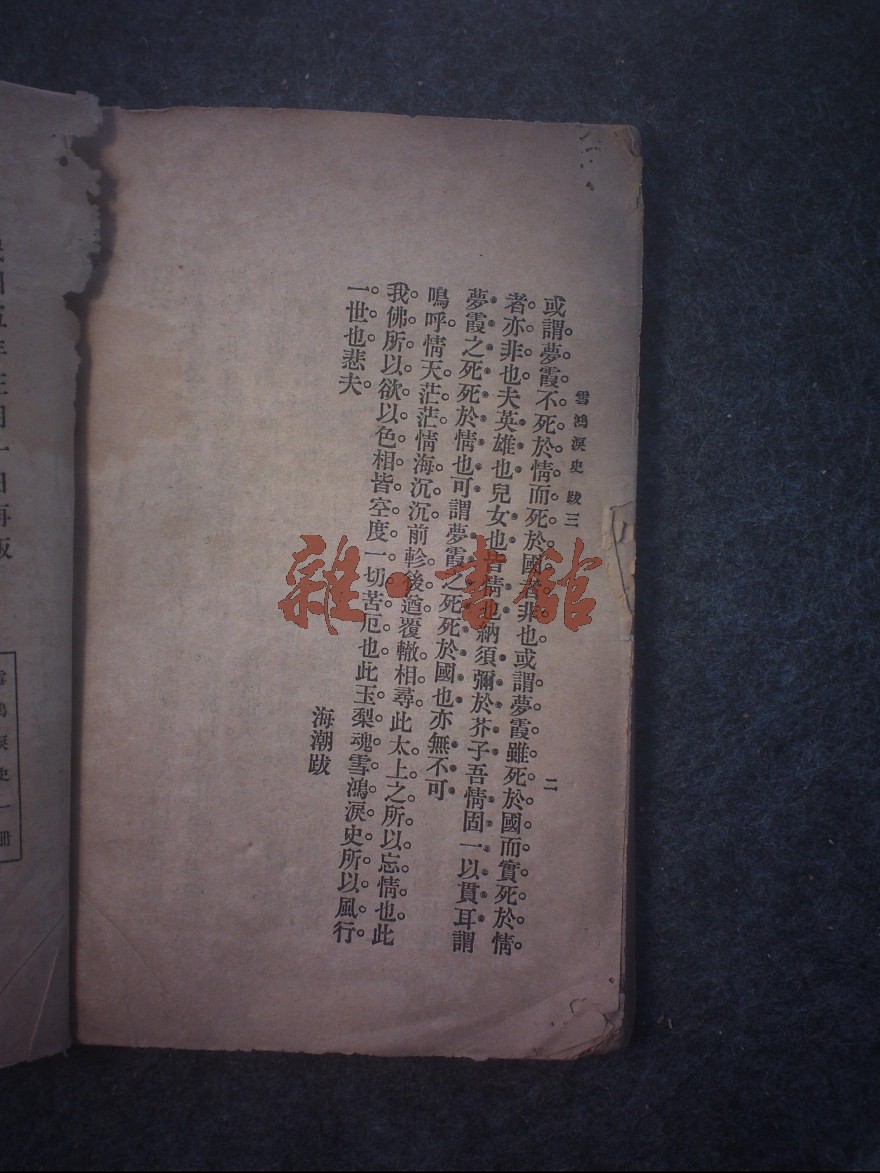 雪鴻淚史 跋三
二
或謂夢霞不死於情而死於國者非也或謂夢霞雖死於國而實死於情
者亦非也夫英雄也兒女也皆情也納須彌於芥子吾情固一以貫耳謂
夢霞之死死於情也可謂夢霞之死死於國也亦無不可
嗚呼情天茫茫情海沉沉前軫後遒覆轍相尋此太上之所以忘情也此
我佛所以欲以色相皆空度一切苦厄也此玉梨魂雪鴻淚史所以風行
一世也悲夫
海潮跋
雜·書館
五年正月十日再版
雪鴻淚史一冊